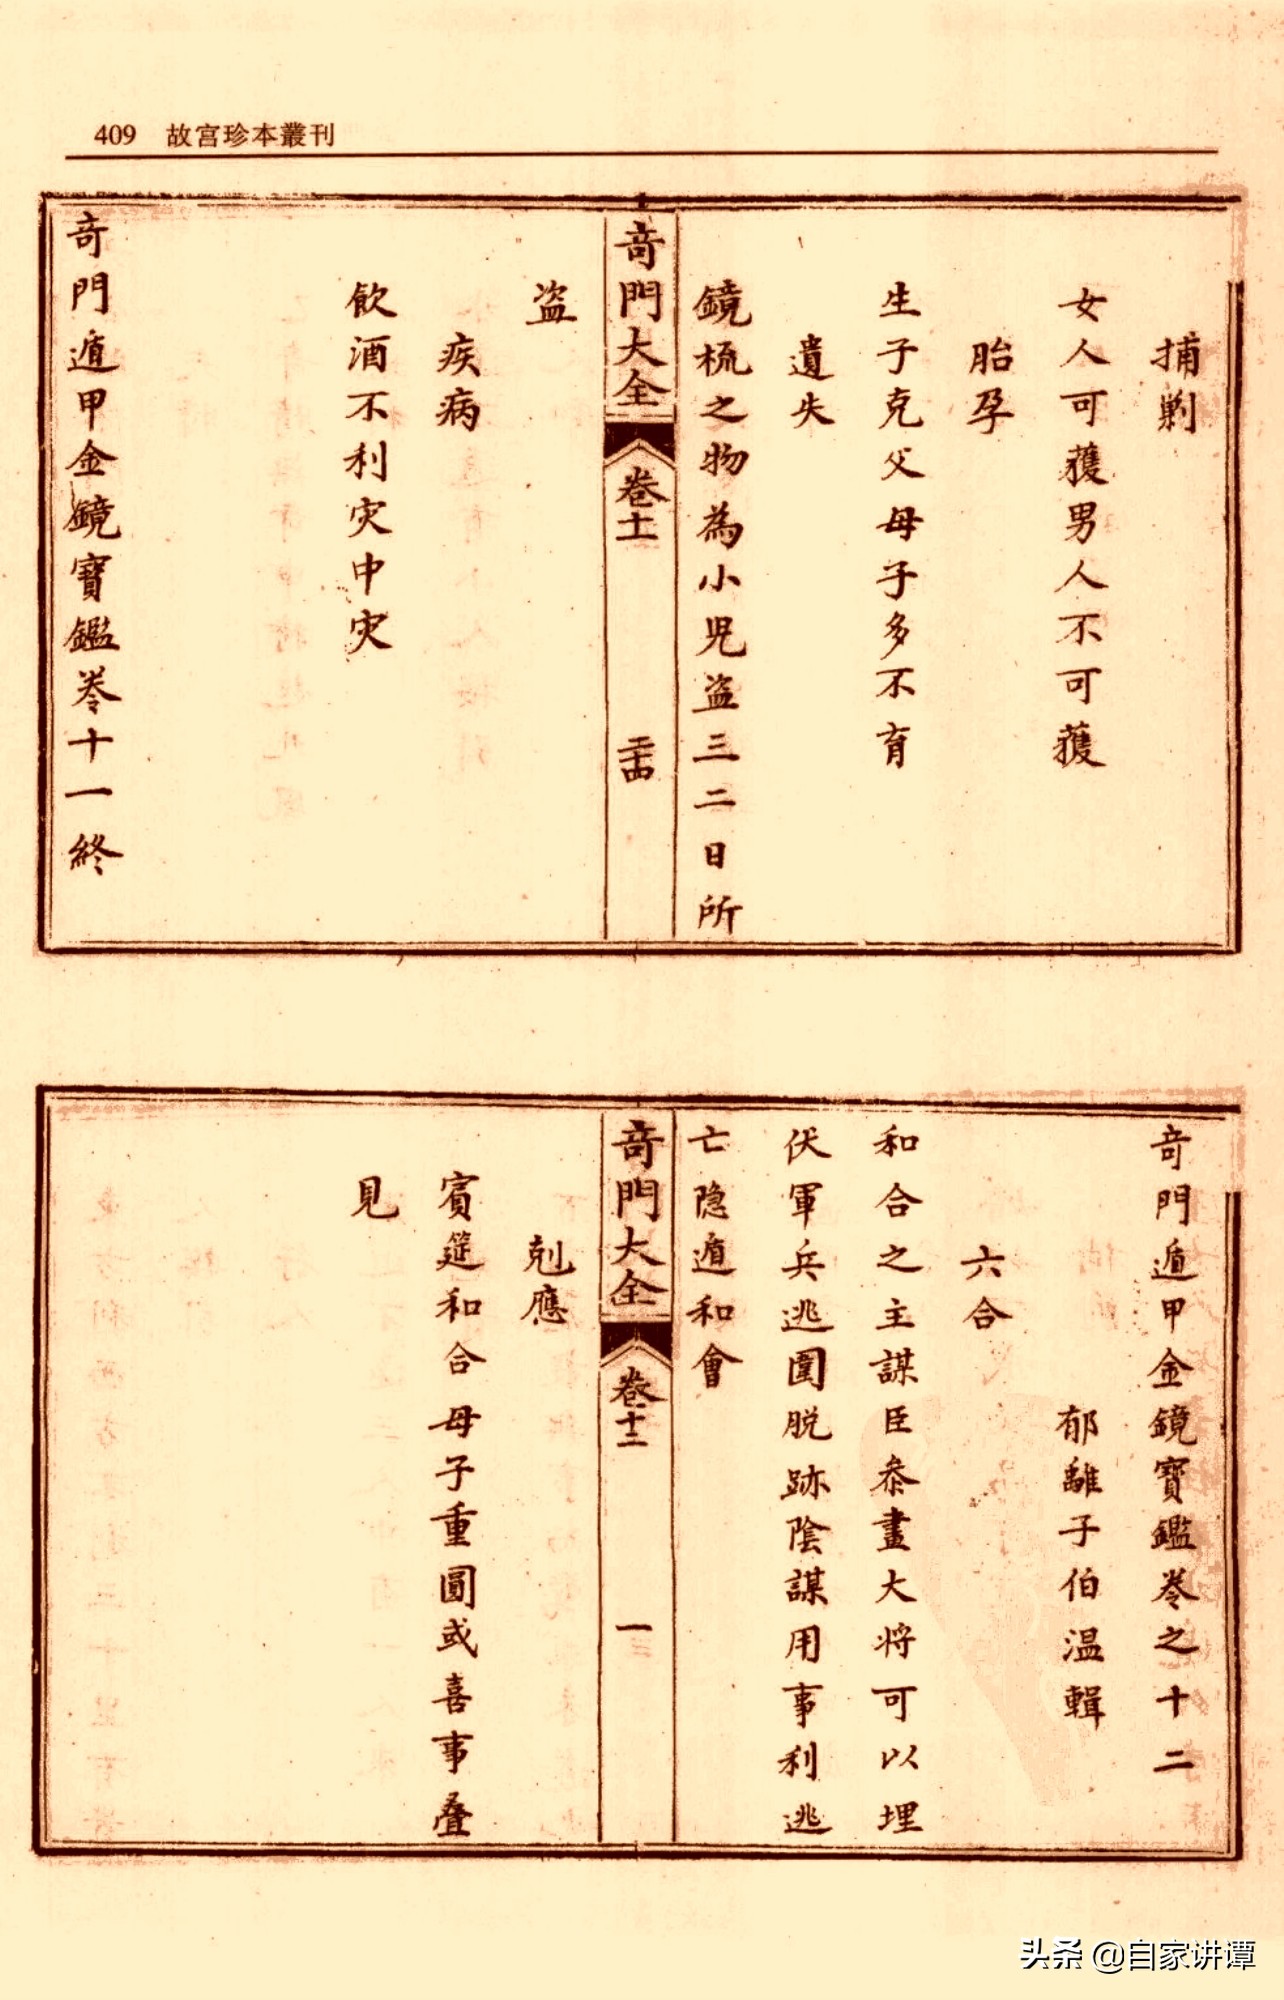 409 故宫珍本叢刊
捕剿
女人可獲男人不可獲
胎孕
生子克父母子多不育
遺失
鏡梳之物為小児盜三二日所
奇門大全 卷十一 二十四
盜
疾病
飲酒不利灾中灾
奇門遁甲金鏡寶鑑卷十一終
奇門遁甲金鏡寶鑑卷之十二
郁離子伯温輯
六合
和合之主謀臣叅畫大将可以埋
伏軍兵逃圍脱跡陰謀用事利逃
亡隐遁和會
奇門大全 卷十二 一
剋應
賓筵和合母子重圓或喜事叠
見
头条 @自家讲谭